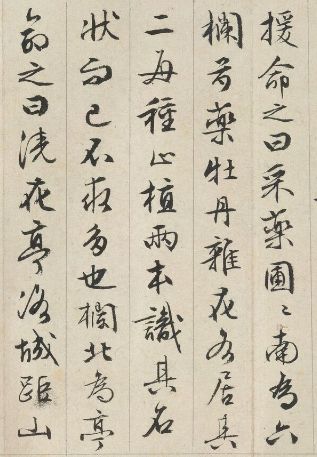 援命之曰采藥圃〻南為六
欄芍藥牡丹雜花各居其
二每種止植兩本識其名
狀而已不求多也欄北為亭
命之曰澆花亭洛城距山